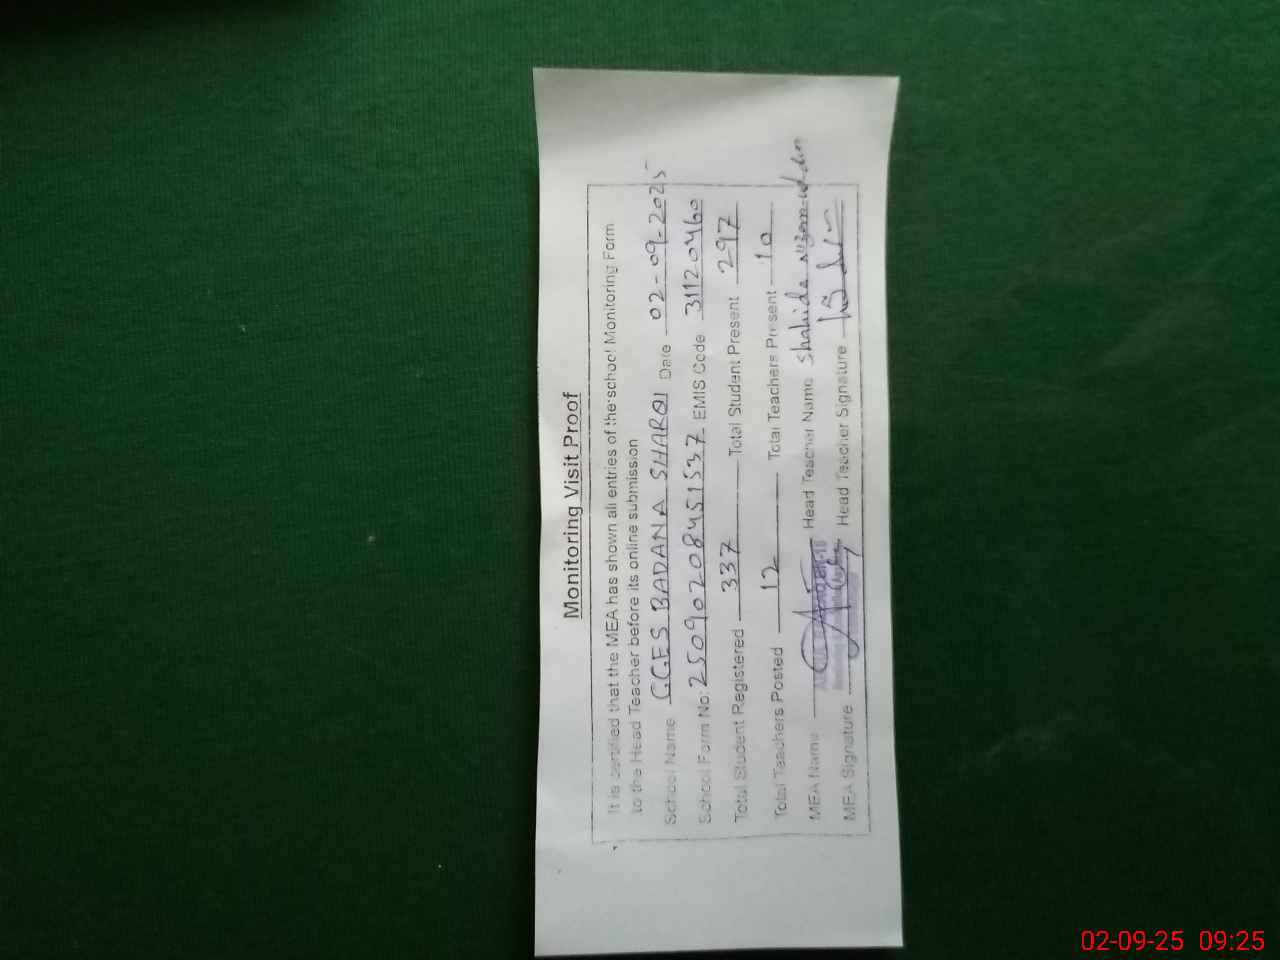 Monitoring Visit Proof
It is certified that the MEA has shown all entries of the school Monitoring Form
to the Head Teacher before its online submission
School Name GGES BADANA SHARQI Date 02-09-2025
School Form No: 25090208451537 EMIS Code 31120460
Total Student Registered 337 Total Student Present 297
Total Teachers Posted 12 Total Teachers Present 10
MEA Name Head Teacher Name Shahida Nizam-ud-din
MEA Signature Head Teacher Signature
02-09-25 09:25